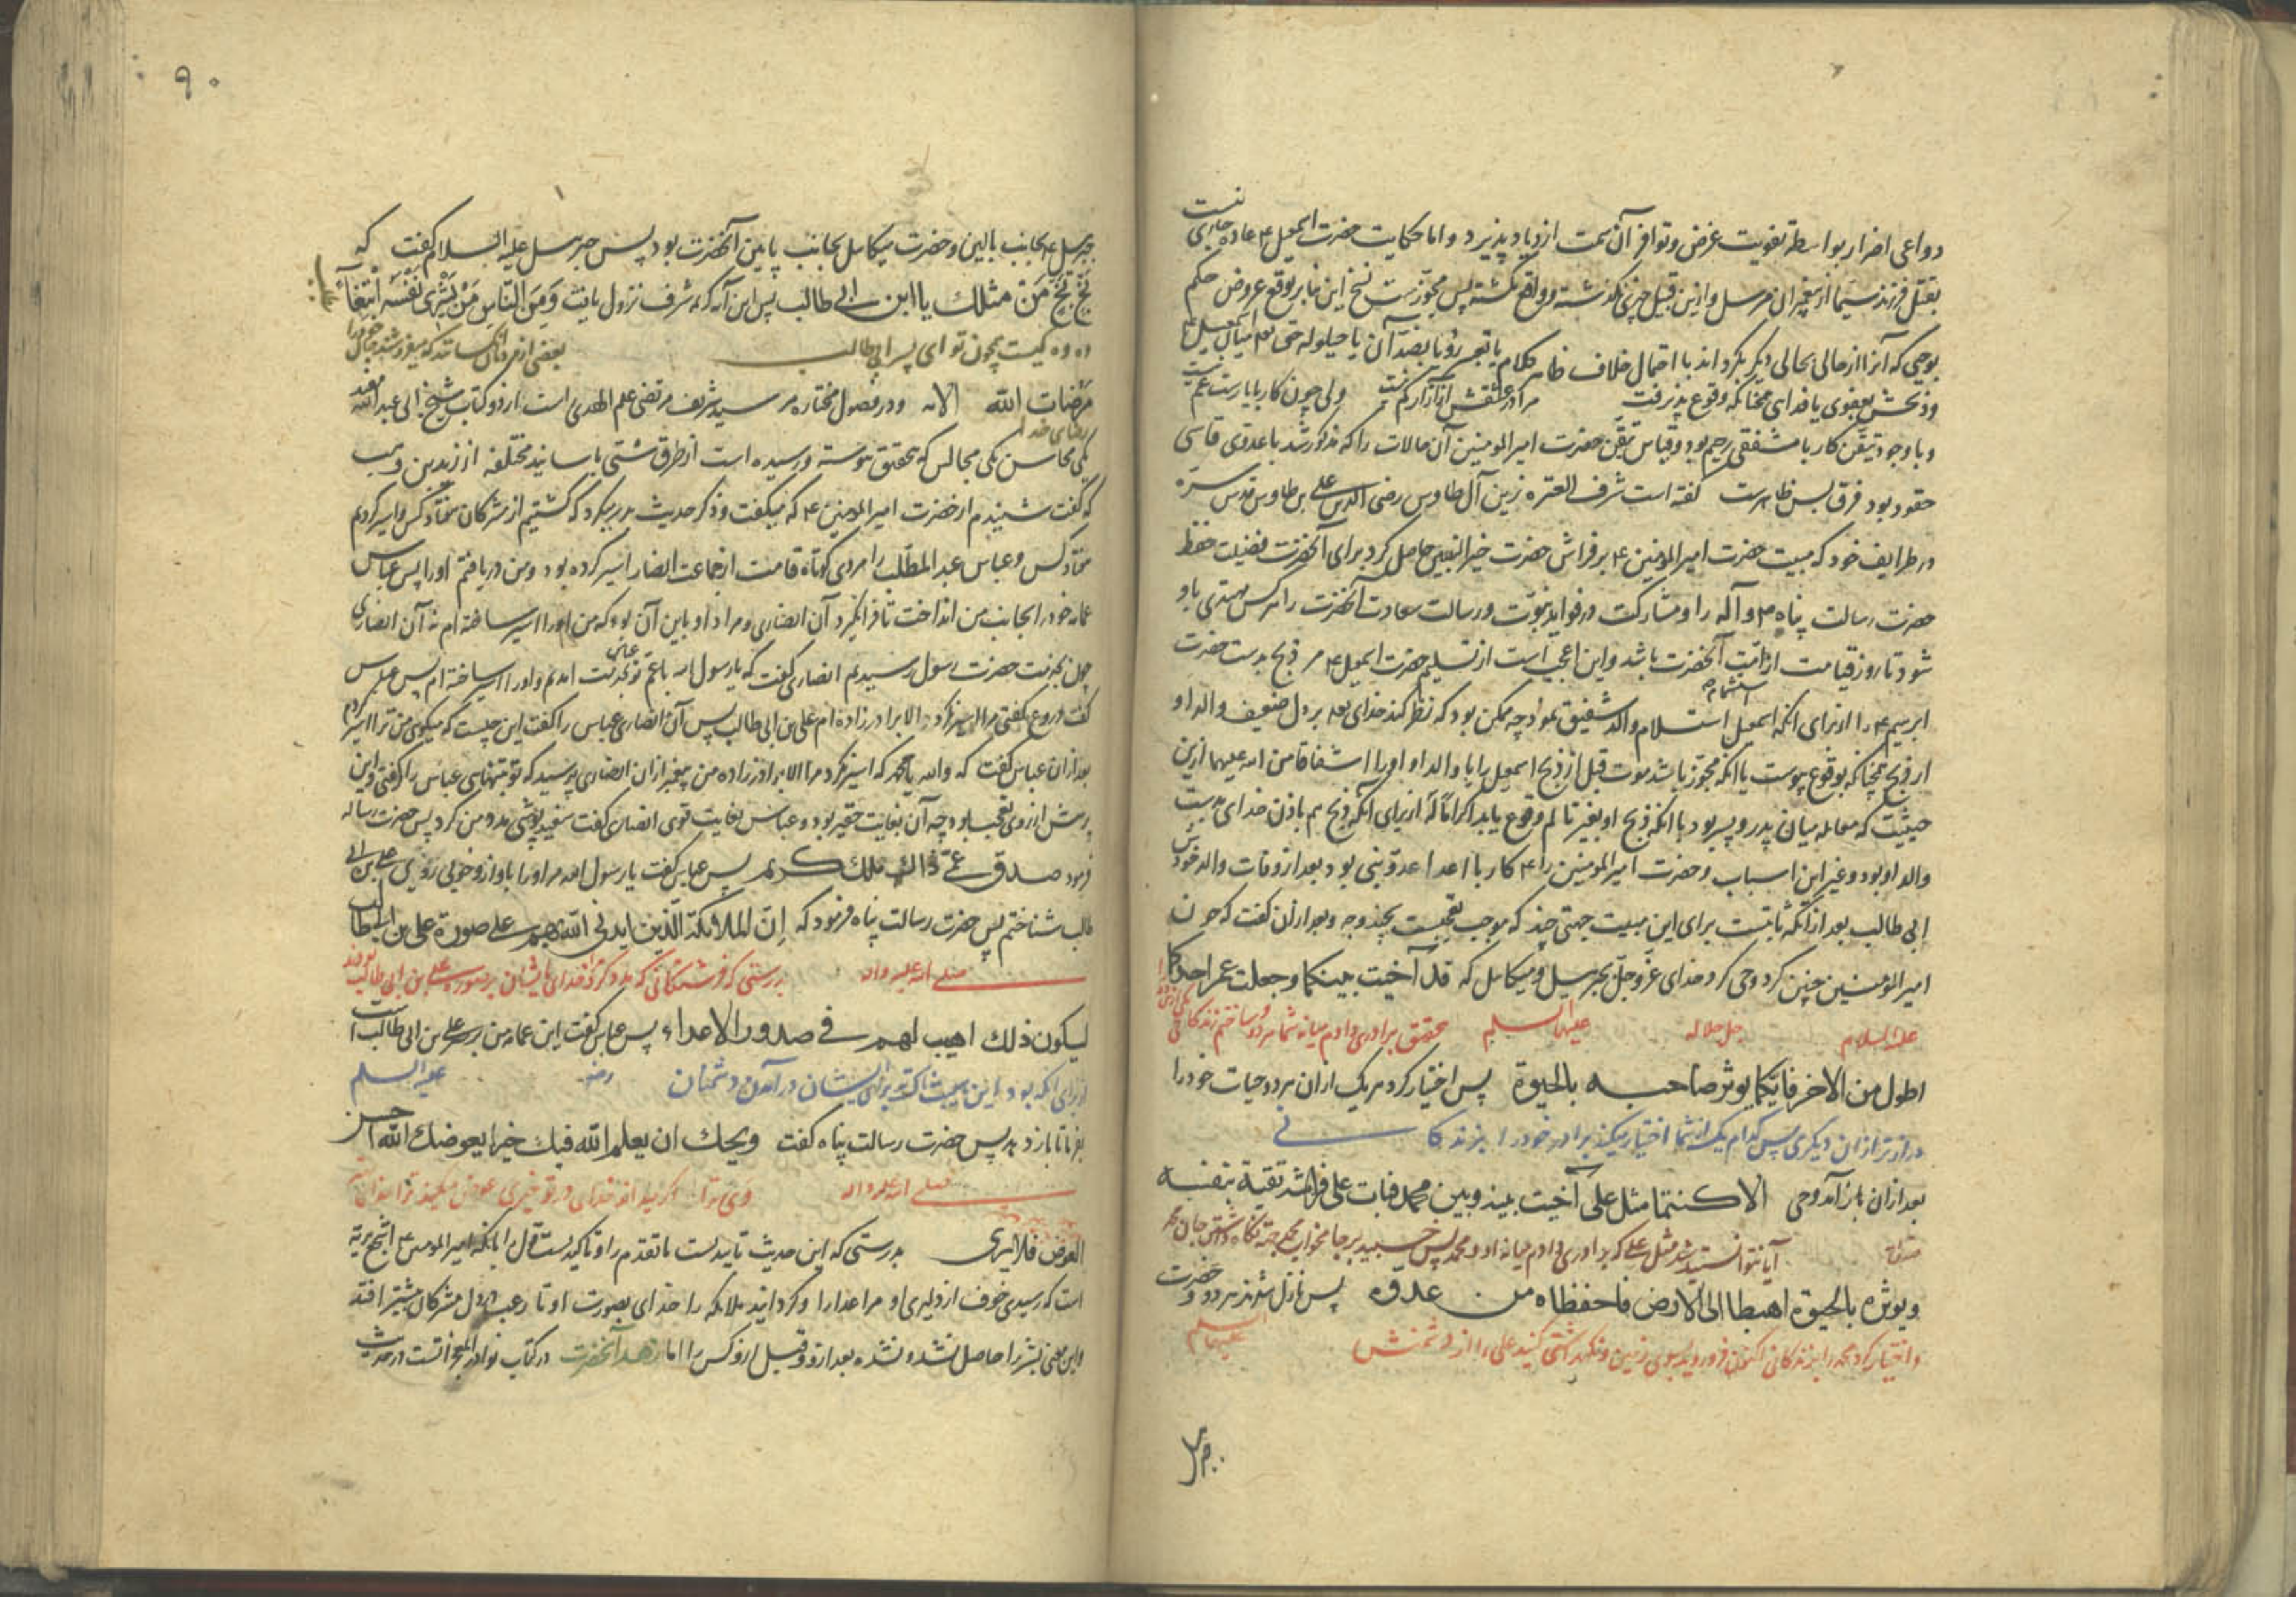 دواعی اضرار بواسطه تفویت غرض و توافر آن سمت ازدیاد پذیرد و اما حکایت حضرت اسمعیل ۴ عاده جاری نیست
بقتل فرزند سیما از پیغمبران مرسل و ازین قبیل چیزی نگذشته و واقع نگشته پس مجوزست نسخ این بنابر توقع عروض حکم
بوحی که آنرا از حالی بحالی دیگر بگرداند با احتمال خلاف ظاهر کلام یا تعبیر رؤیا بضد آن یا حیلوله حق
و ذبحش بعفوی یا فدایی همچنانکه وقوع پذیرفت ولی چون کار بابا رست غم نیست
و با وجود تیقن کار با مشفقی رحیم بود و قیاس تیقن حضرت امیرالمومنین آن حالات را که مذکور شد با عدوی قاسی
حقود بود فرق بس ظاهرست گفته است شرف العتره زین آل طاوس رضی الدین علی بن طاوس قدس سره
در طرایف خود که مبیت حضرت امیرالمومنین ۴ بر فراش حضرت خیر النبیین حاصل کرد برای آنحضرت فضیلت حفظ
حضرت رسالت پناه ص و آله را و مشارکت در فواید نبوت و رسالت و سعادت آنحضرت را هر کس مهتدی باو
شود تا روز قیامت از امت آنحضرت باشد و این اعجب است از تسلیم حضرت اسمعیل ۴ مر ذبح بدست حضرت
ابرهیم ۴ را از برای آنکه اسمعیل استسلام والد شفیق نمود چه ممکن بود که نظر کند خدای تعه بر دل ضعیف والد او
از ذبح همچنانکه بوقوع پیوست یا آنکه مجوز باشد موت قبل از ذبح اسمعیل را یا والد او او را اشفاقا من الله علیهما ازین
حیثیت که معامله میان پدر و پسر بود با آنکه ذبح او بغیر تالم وقوع یابد اکراما له از برای آنکه ذبح هم باذن خدای بدست
والد او بود و غیر این اسباب و حضرت امیرالمومنین را ۴ کار با اعدا عدو نبی بود بعد از وفات والد خودش
ابی طالب بعد از آنکه ثابتست برای این مبیت جهتی چند که موجب تعجبست بچند وجه و بعد از آن گفت که چون
امیرالمومنین چنین کرد وحی کرد خدای عز و جل بجبرئیل و میکائیل که قد آخیت بینکما و جعلت عمر احدکما
علیه السلام جل جلاله علیهما السلم بتحقیق برادری دادم میانه شما هر دو و ساختم زندگانی یکی از شما را
اطول من الاخر فایکما یوثر صاحبه بالحیوة پس اختیار کرد هر یک از آن هر دو حیات خود را
دراز تر از آن دیگری پس کدام یک از شما اختیار میکند برادر خود را بزندگانی
بعد از آن باز آمد وحی الا کنتما مثل علی آخیت بینه و بین محمد فبات علی فراشه تقیة بنفسه
آیا نتوانستید شد مثل علی که برادری دادم میانه او و محمد پس خسبید بر جا
و یوثره بالحیوة اهبطا الی الارض فاحفظاه من عدوه پس نازل شدند هر دو و حضرت
و اختیار کرد محمد را بزندگانی اکنون فرود روید بسوی زمین و نگهداشتی کنید علی را از دشمنش علیهما السلم
۹۰
جبرئیل ۴ بجانب بالین و حضرت میکائیل بجانب پایین آنحضرت بود پس جبرئیل علیه السلام گفت که
بَخٍّ بَخٍّ مَن مثلك یا ابن ابی طالب پس این آیه کریمه شرف نزول یافت وَمِنَ النَّاسِ مَنْ یَشْرِی نَفْسَهُ ابْتِغَاءَ
وه وه کیست همچون تو ای پسر ابی طالب بعضی از مردمان آنکسانند که میفروشند جان خود را
مَرْضَاتِ الله الایه و در فصول مختاره مر سید شریف مرتضی علم الهدی راست از دو کتاب شیخ ابی عبدالله مفید
رضای خدا
یکی محاسن یکی مجالس که بتحقیق پیوسته و رسیده است از طرق شتی با سانید مختلفه از زید بن وهب
که گفت شنیدم از حضرت امیرالمومنین ۴ که میگفت و ذکر حدیث بدر میکرد که کشتیم از مشرکان هفتاد کس و اسیر کردیم
هفتاد کس و عباس عبدالمطلب را مردی کوتاه قامت از جماعت انصار اسیر کرده بود و من دریافتم او را پس عباس
عمامه خود را بجانب من انداخت تا فرا نگیرد آن انصاری و مراد او باین آن بود که من او را اسیر ساخته ام نه آن انصاری
چون بخدمت حضرت رسول رسیدیم انصاری گفت که یا رسول الله با عم تو عباس بخدمت آمدم و او را اسیر ساخته ام پس عباس
گفت دروغ گفتی مرا اسیر نکرد الا برادرزاده ام علی بن ابی طالب پس آن انصاری عباس را گفت این چیست که میگویی من ترا اسیر کردم
بعد از آن عباس گفت که والله یا محمد که اسیر نکرد مرا الا برادرزاده من پیغمبر از آن انصاری پرسید که تو بتنهایی عباس را گرفتی و این
پرسش از روی تعجب بود چه آن بغایت حقیر بود و عباس بغایت قوی انصاری گفت سفیدپوشی مدد من کرد پس حضرت رساله
فرمود صدق عمی ذاك ملك کریم پس عباس گفت یا رسول الله من او را باواز و خوبی روی علی بن ابی
طالب شناختم پس حضرت رسالت پناه فرمود که اِنّ الملائکة الّذین ایدنی الله بهم علی صورة علی بن ابیطالب
صلی الله علیه و اله بدرستی که فرشتگانی که مدد کرد مرا خدای بایشان بر صورت علی بن ابی طالب بودند
لیکون ذلك اهیب لهم فی صدور الاعداء پس عباس گفت این عمامه من بر سر علی بن ابی طالب است
از برای آنکه بود این هیبت برای ایشان در دلهای دشمنان رض علیه السلم
بفرما تا باز دهد پس حضرت رسالت پناه گفت ویحك ان یعلم الله فیك خیرا یعوضك الله احسن
صلی الله علیه و اله وای ترا اگر میداند خدای در تو خیری عوض میکند ترا
العوض فلا ایری بدرستی که این حدیث تاییدست ما تقدم را و تاکیدست قول را بآنکه امیرالمومنین ۴ اشجع بریه
است که رسیدی خوف از دلیری او مر اعدا را و گردانید ملائکه را خدای بصورت او تا رعب در دل مشرکان بیشتر افتد
و این معنی بشر را حاصل نشده و نشده بعد از او و قبل از او کس را اما زهد آنحضرت در کتاب نوادر المعجزاتست در حدیث